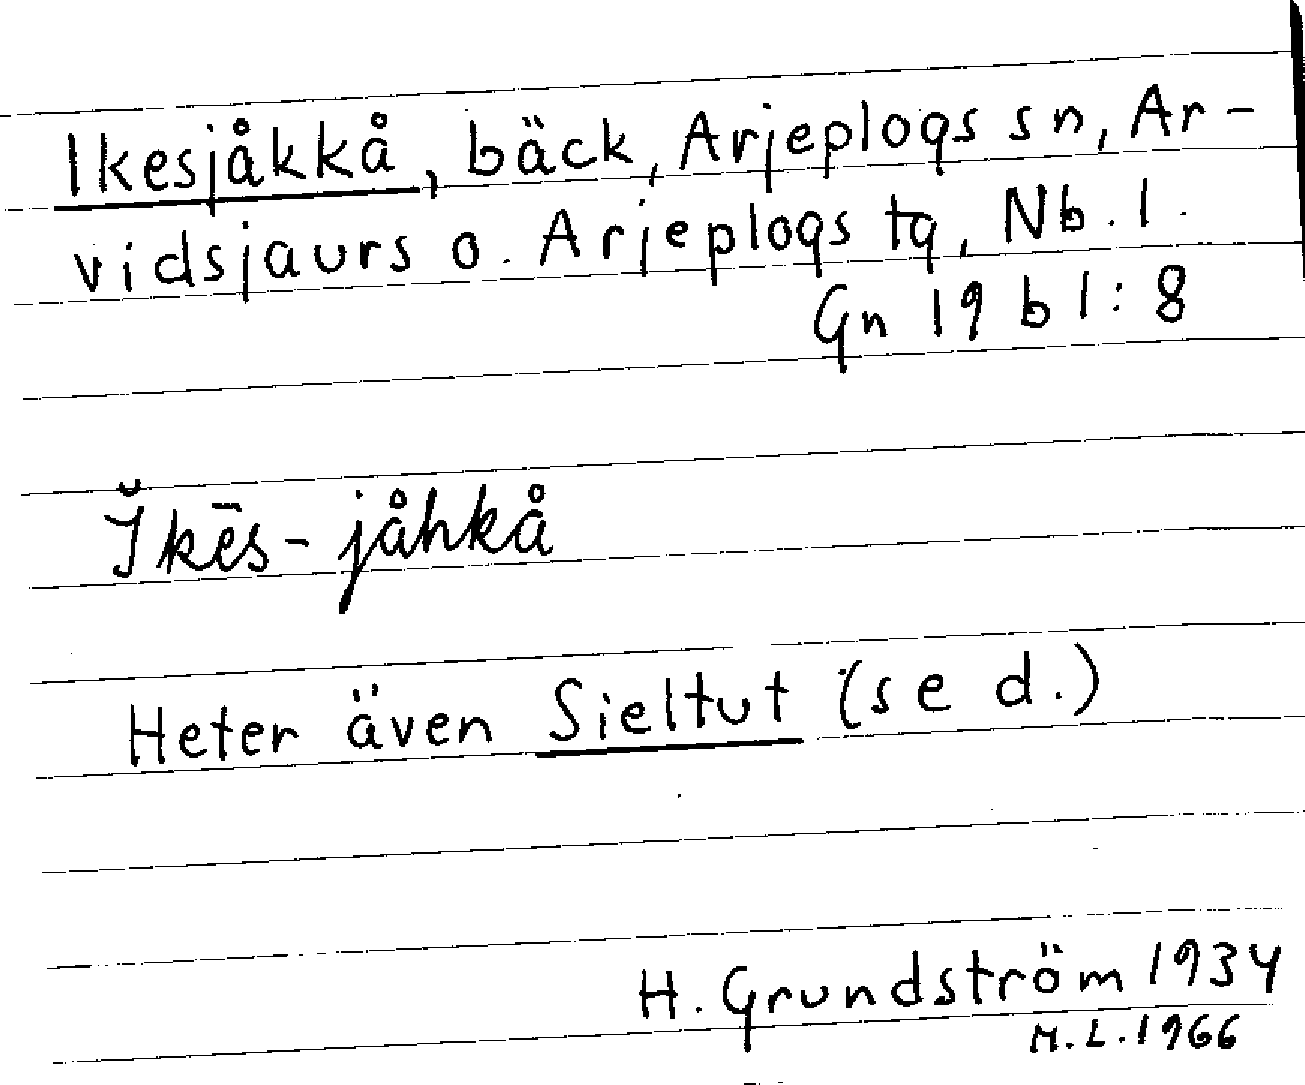 Ikesjåkkå, bäck, Arjeplogs sn, Ar-
vidsjaurs o. Arjeplogs tg, Nb. l.
Gn 19 b 1:8
Ĭkēs-jåhkå
Heter även Sieltut (se d.)
H. Grundström 1934
M.L. 1966